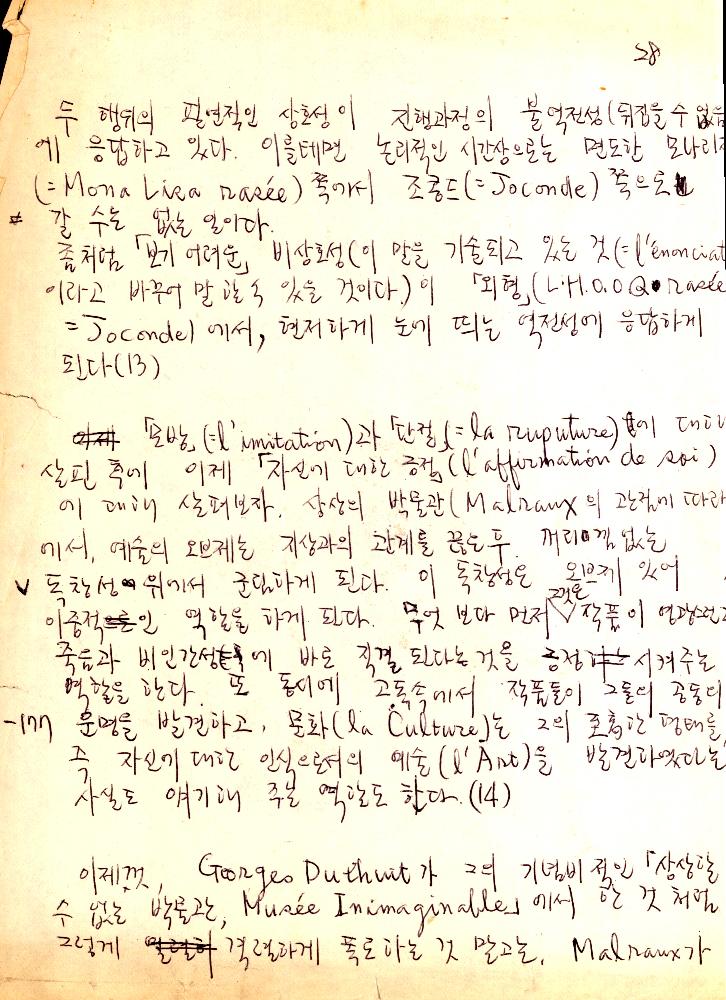 28
두 행위의 필연적인 상호성이 진행과정의 불역전성(뒤집을 수 없음
에 응답하고 있다. 이를테면 논리적인 시간상으로는 면도한 모나리자
(=Mona Lisa rasée) 쪽에서 조콩드(=Joconde) 쪽으로
갈 수는 없는 일이다.
좀처럼 「보기 어려운」 비상호성(이 말을 기술되고 있는 것(=l'énonciat
이라고 바꾸어 말할 수 있을 것이다.)이 「외형」(L.H.O.O.Q. rasée
=Joconde)에서, 현저하게 눈에 띄는 역전성에 응답하게
된다(13)
「모방」(=l'imitation)과 「단절」(=la ruputure)에 대해
살핀 후에 이제 「자신에 대한 긍정」(l'affirmation de soi)
에 대해 살펴보자. 상상의 박물관(Malraux의 관점에 따라
에서, 예술의 오브제는 지상과의 관계를 끊은 후 꺼리낌없는
독창성 위에서 군림하게 된다. 이 독창성은 오브제 있어
이중적인 역할을 하게 된다. 무엇 보다 먼저 그것은 작품이 영광스런
죽음과 비인간성에 바로 직결된다는 것을 긍정시켜주는
역할을 한다. 또 동시에 고독속에서 작품들이 그들의 공동의
운명을 발견하고, 문화(la Culture)는 그의 형태를,
즉 자신에 대한 인식으로서의 예술(l'Art)을 발견하였다는
사실도 얘기해 주는 역할도 한다.(14)
이제껏, Georges Duthuit가 그의 기념비적인 「상상할
수 없는 박물관, Musée Inimaginable」에서 한 것 처럼
그렇게 격렬하게 폭로하는 것 말고는, Malraux가